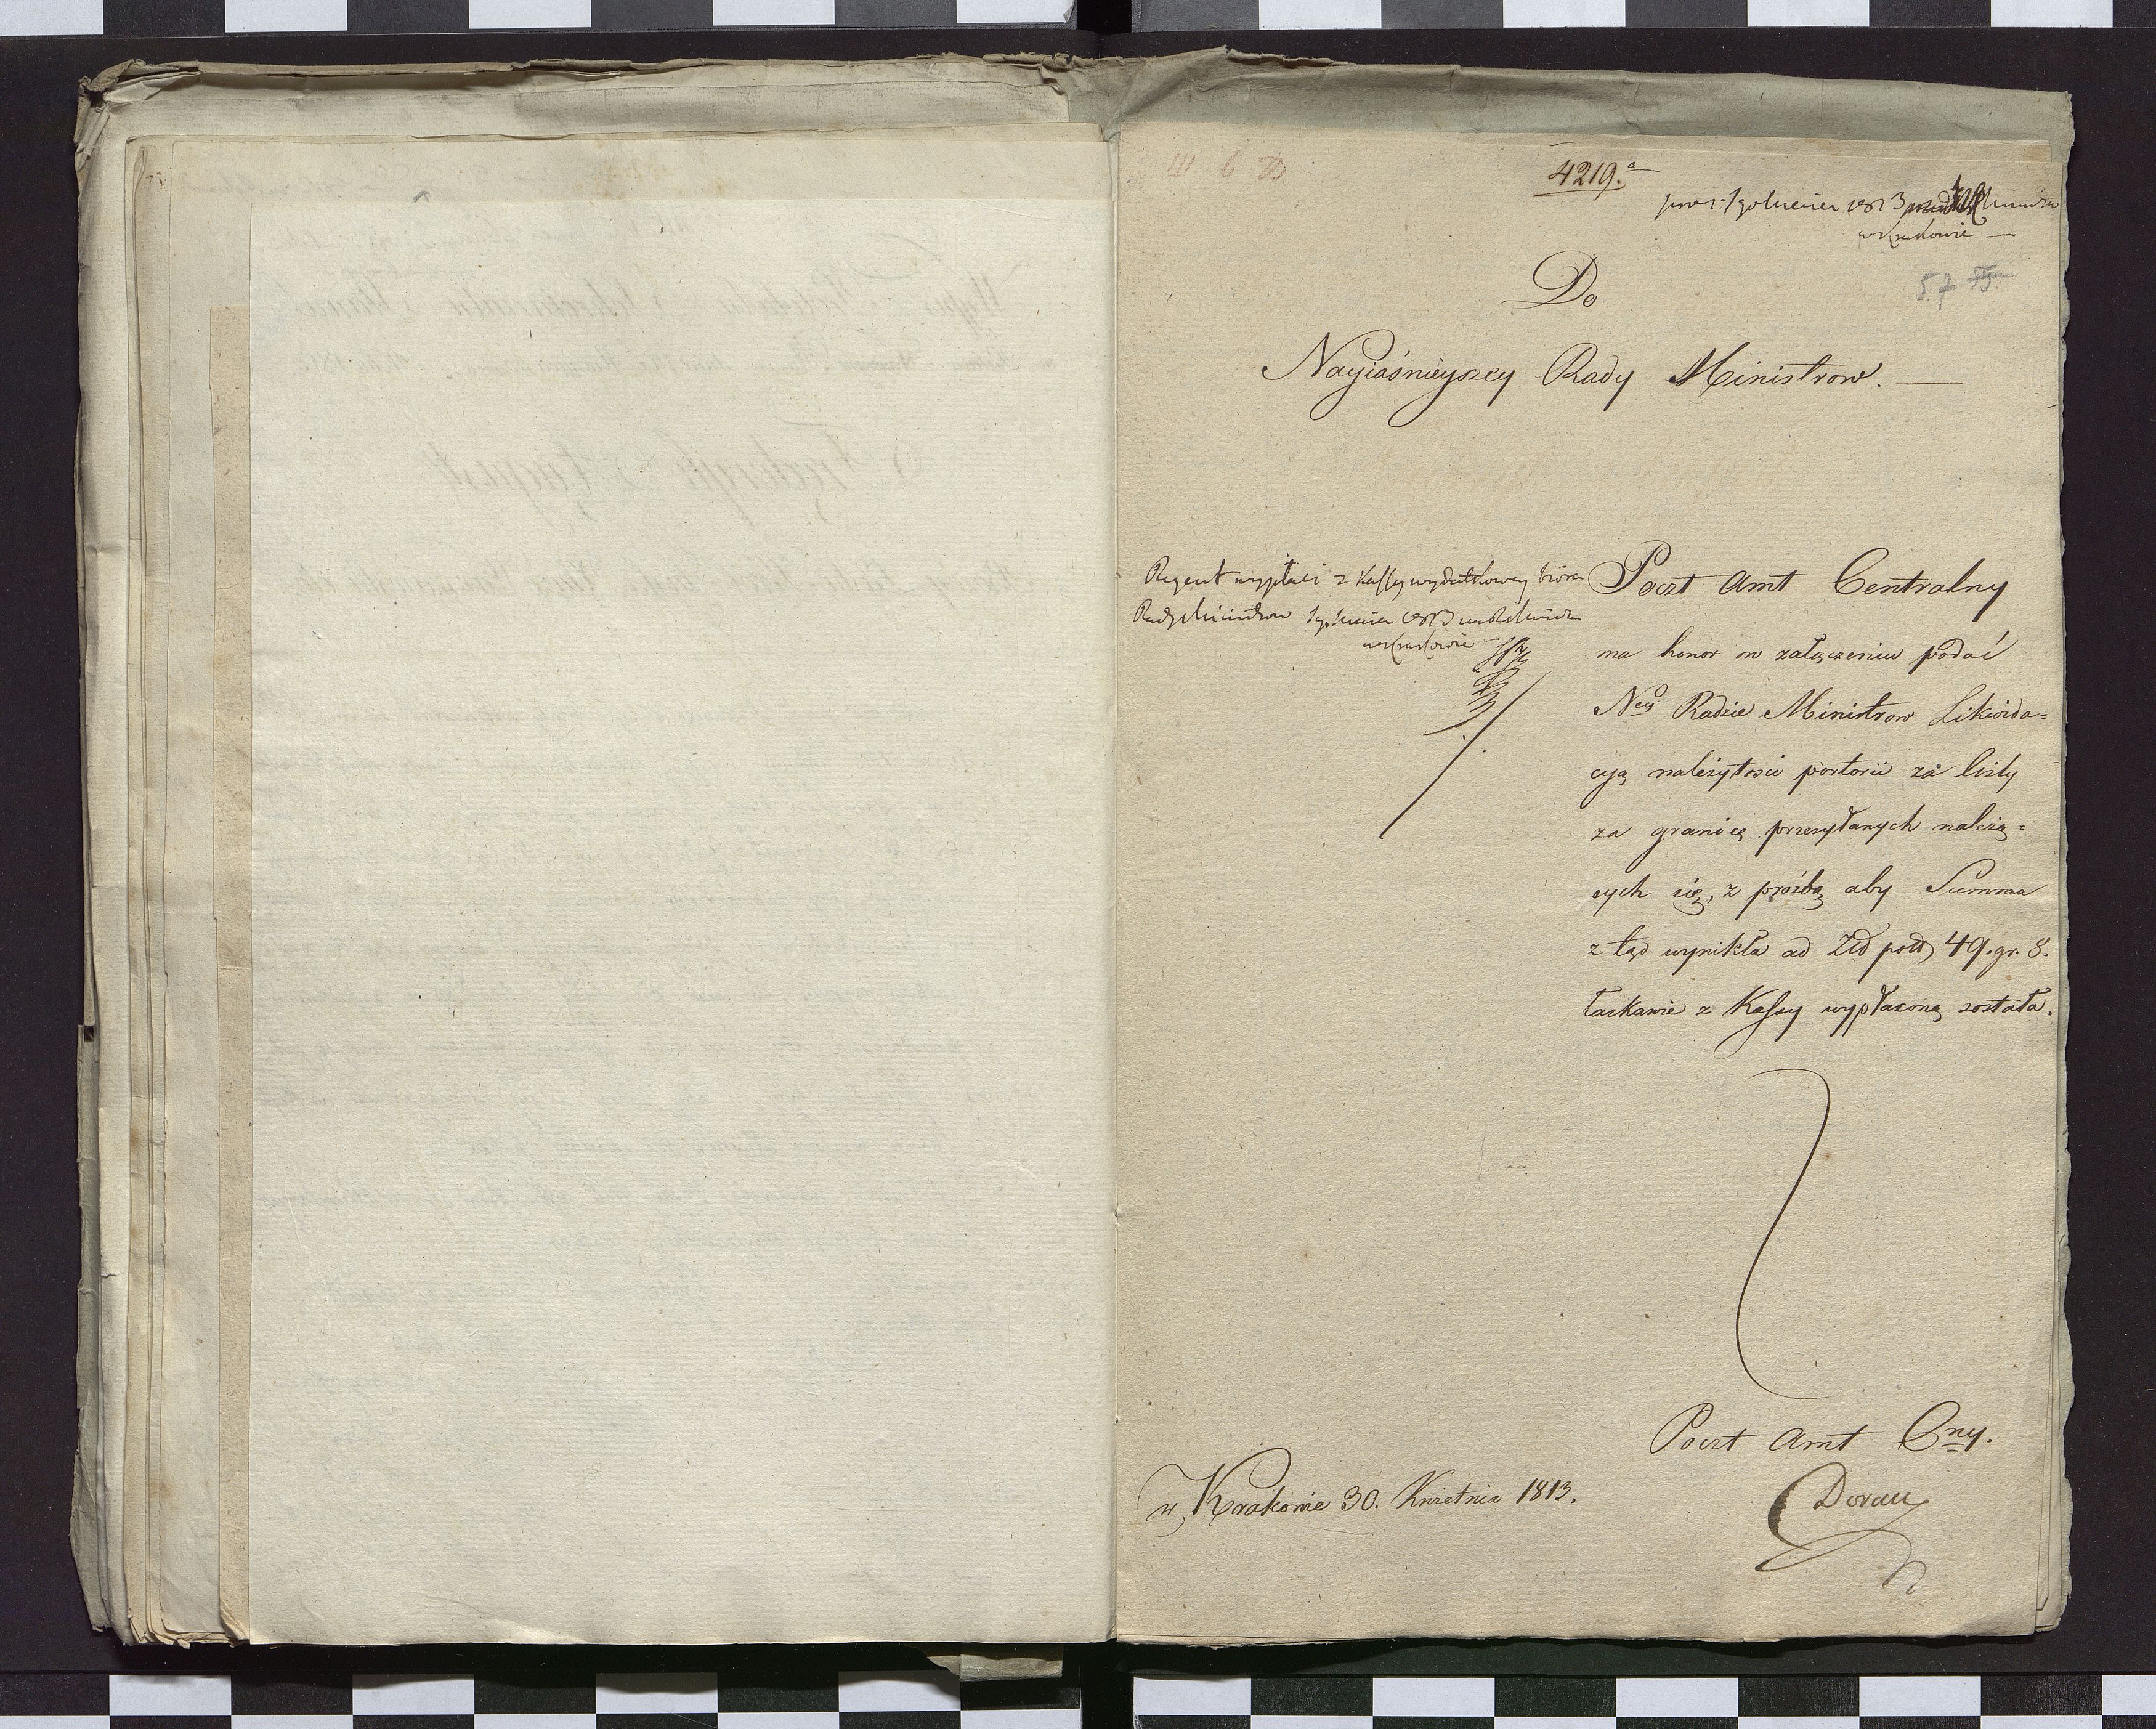 4219.a
w Krakowie —
57 55
Do
Nayiaśnieyszey Rady Ministrow. —
Regent wypłaci z Kassy wydatkowey biora
Rady Ministrow
w Krakowie
Poczt Amt Centralny
ma honor w załączeniu podać
Ney Radzie Ministrow Likwida=
cyą należytości portorii za listy
za granicę przesyłanych należą=
cych się, z prośbą aby Summa
z tąd wynikła ad Złł poll 49. gr. 8.
łaskawie z Kassy wypłaconą została.
Poczt Amt Cny.
w Krakowie 30. Kwietnia 1813.
Dorau